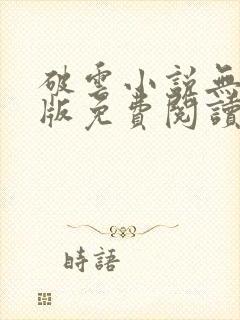 破雲小說無
版免費閱讀
時語